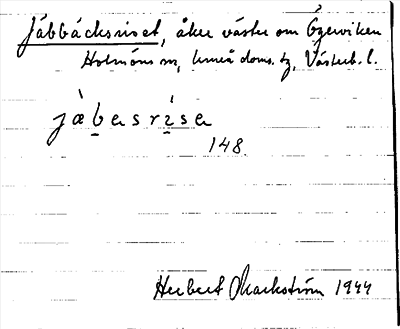 Jäbbäcksriset, åker väster om Byxviken
Holmöns sn, Umeå doms. tg, Västerb. l.
jæ̀bɐsrìsɐ
148.
Herbert Markström 1944